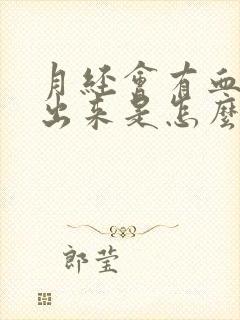 月经會有血
出来是怎麼
郎莹